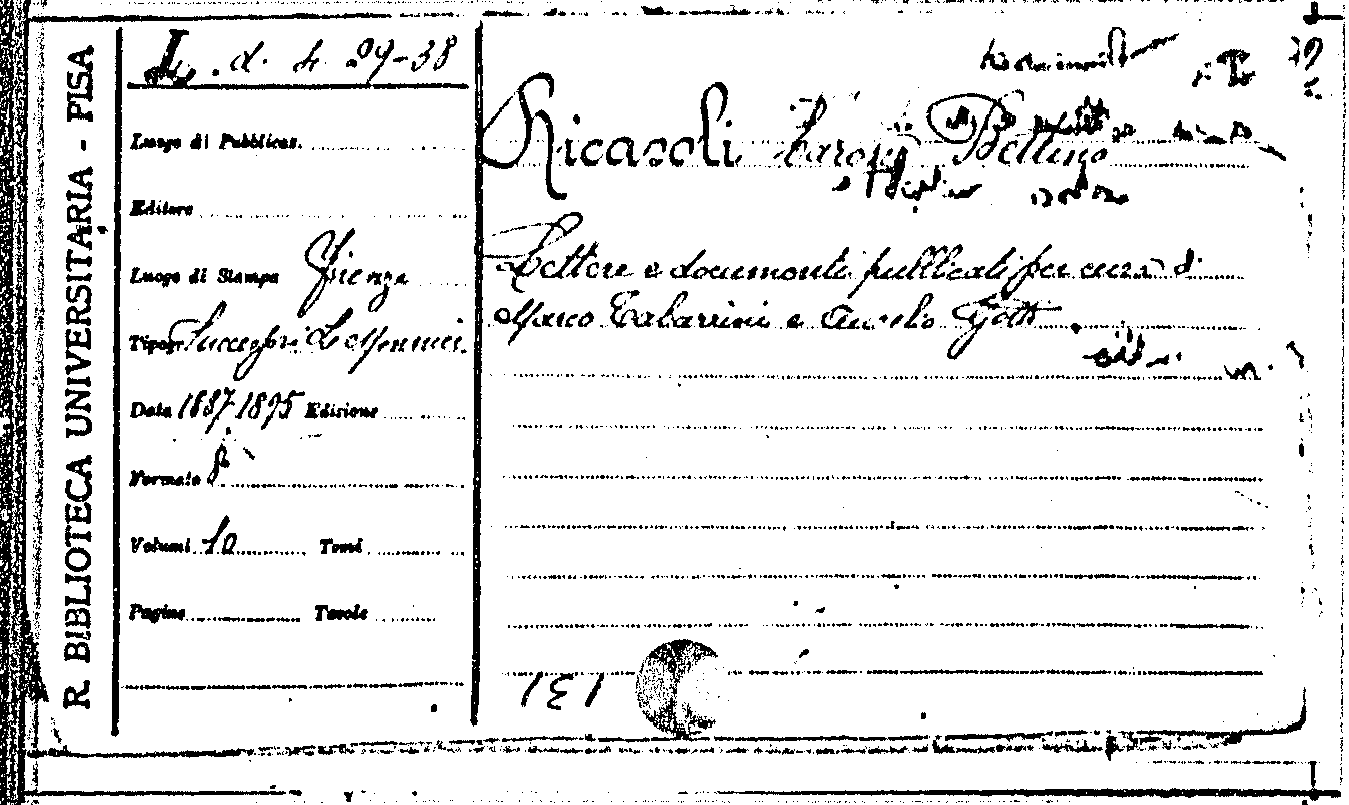 R. BIBLIOTECA UNIVERSITARIA - PISA
L. d. 4. 29-38
Luogo di Pubblicaz.
Editore
Luogo di Stampa Firenze
Tipogr. Successori Le Monnier.
Data 1887-1895 Edizione
Formato 8°
Volumi 10 Tomi
Pagine Tavole
Ricasoli Barone Bettino
Lettere e documenti pubblicati per cura di
Marco Tabarrini e Aurelio Gotti
131